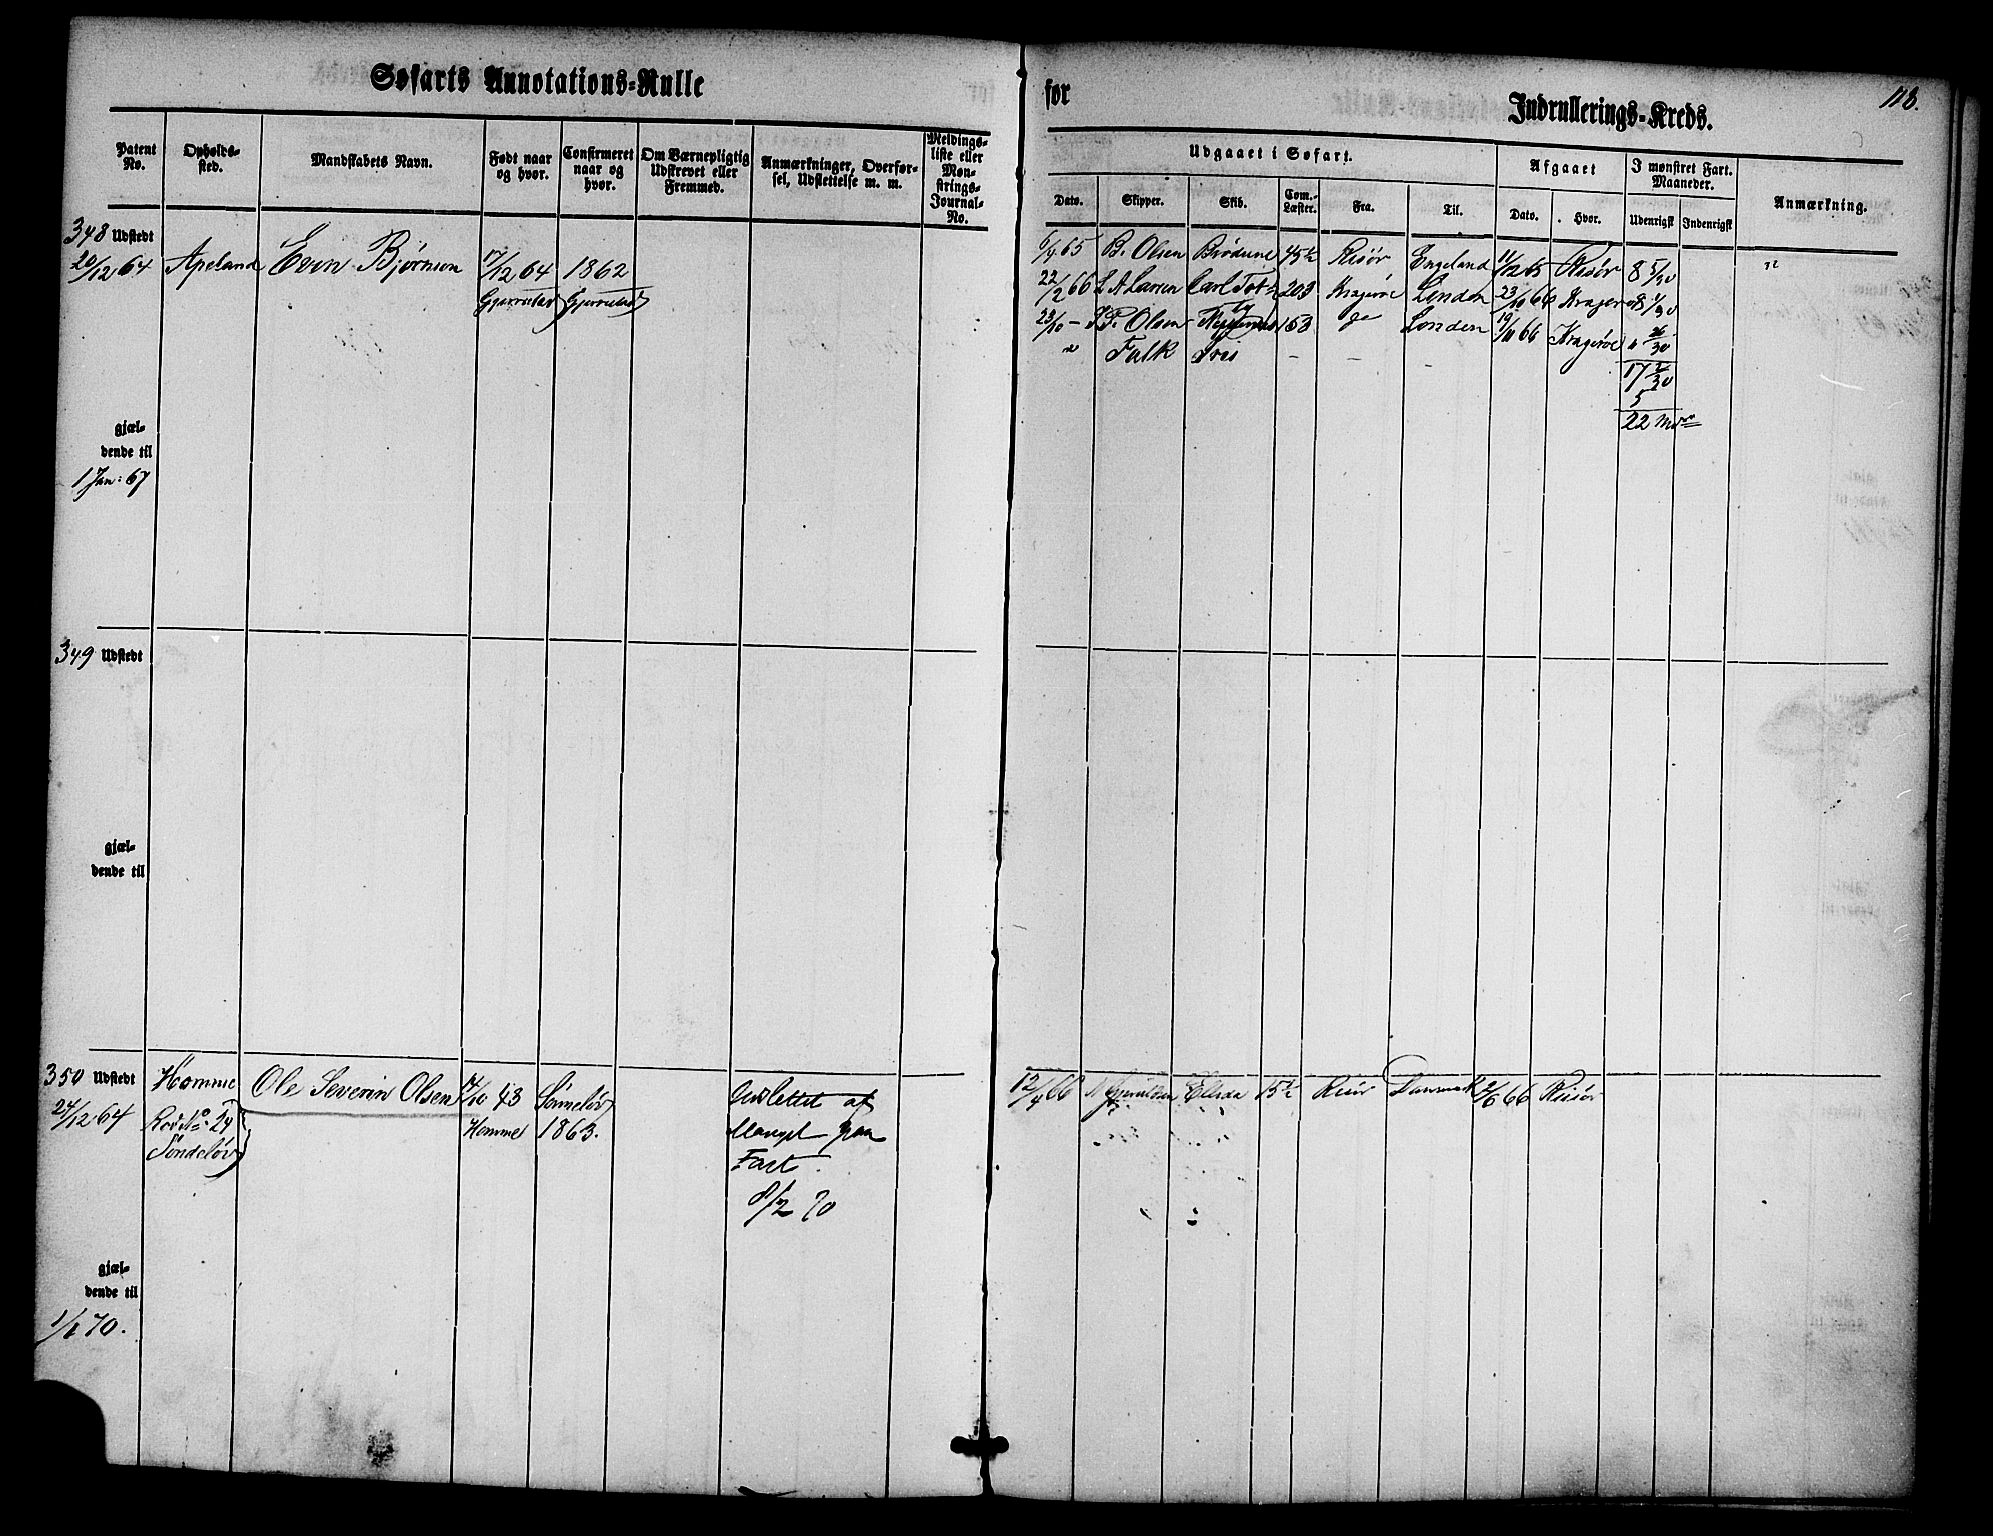 Søfarts Annotations-Rulle
for
Indrullerings-Kreds.
118.
Patent No.
Opholds-sted.
Mandskabets Navn.
Født naar og hvor.
Confirmeret naar og hvor.
Om Værnepligtig Udskrevet eller Fremmed.
Anmærkninger, Overførsel, Udslettelse m. m.
Meldings-liste eller Mønstrings-Journal-No.
Udgaaet i Søfart.
Afgaaet
I mønstret Fart. Maaneder.
Anmærkning.
Dato.
Skipper.
Skib.
Com.-Læster.
Fra.
Til.
Dato.
Hvor.
Udenrigsk
Indenrigsk
348 Udstedt
20/12 64 Apeland Even Bjørnsen 17/12 64 1862
Gjerrestad Gjerrestad
6/4 65 B. Olsen 45½ Risør Engeland 11/12 65 Risør 8 5/30
22/2 66 L A Larsen 203 Kragerøe London 23/10 66 Kragerøe 8 1/30
23/10 - P. Olsen Neptunus 153 do London 19/11 66 Kragerøe " 26/30
" Falk - -
17 2/30
5
22 Mdr
gjæl-
dende til
1 Jan: 67
349 Udstedt
gjæl-
dende til
350 Udstedt
24/12 64
Homme
Rode No 24
Søndeløv
Ole Severin Olsen
17/10 43
Homme
Sønneløv
1863.
Udslettet af
Mangel paa
Fart.
8/2 70
12/4 66 Ellida 15½ Risør Danmark 2/6 66 Riisør
gjæl-
dende til
1/1 70.